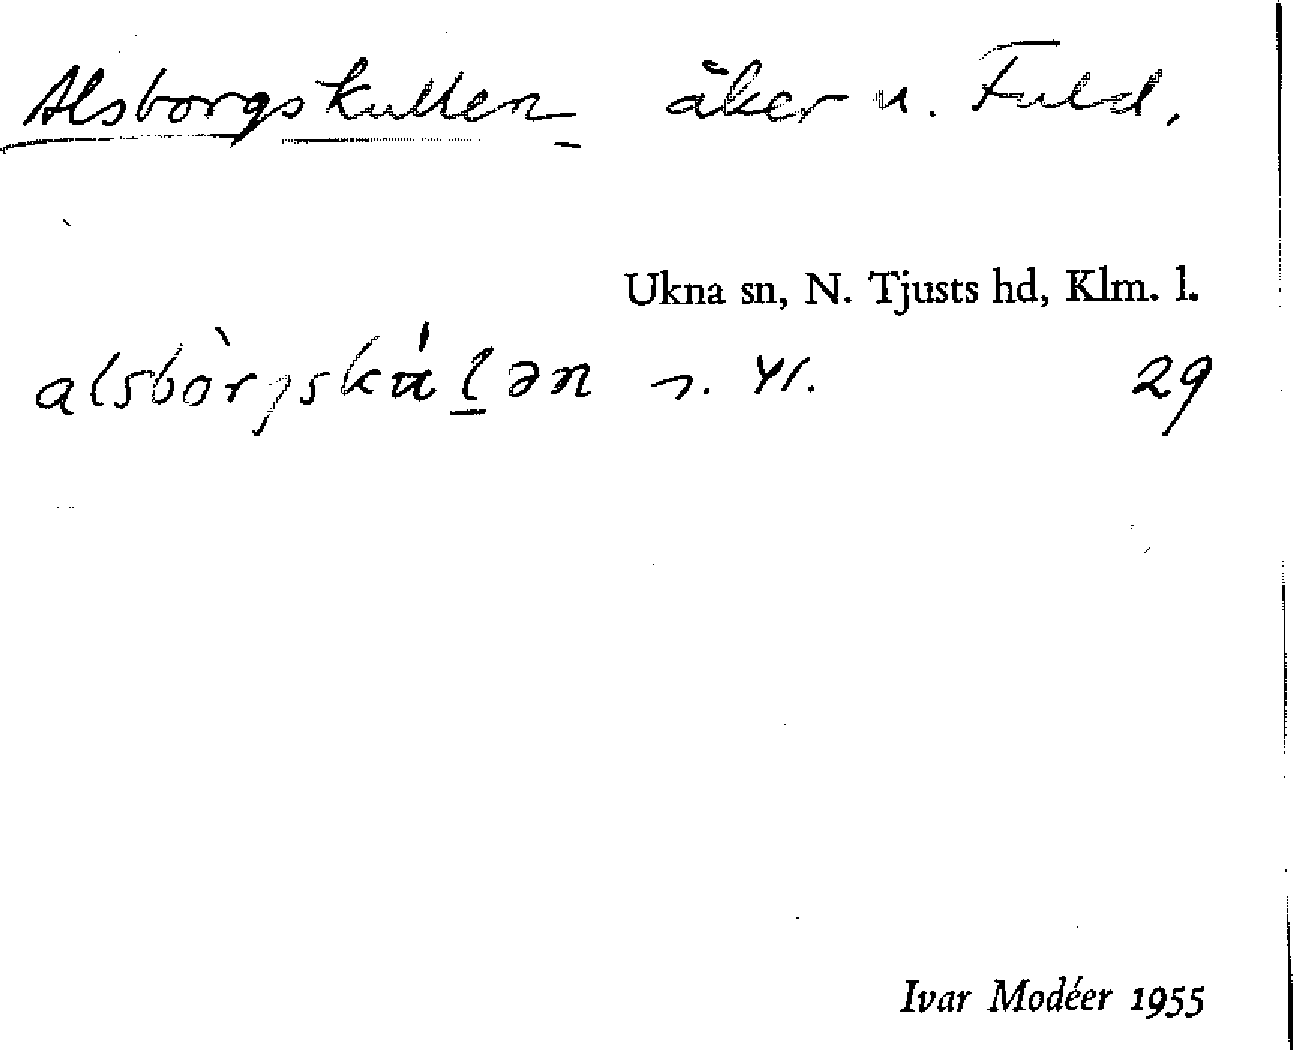 Alsborgskullen åker u. Fuld.
Ukna sn, N. Tjusts hd, Klm. l.
29
Ivar Modéer 1955